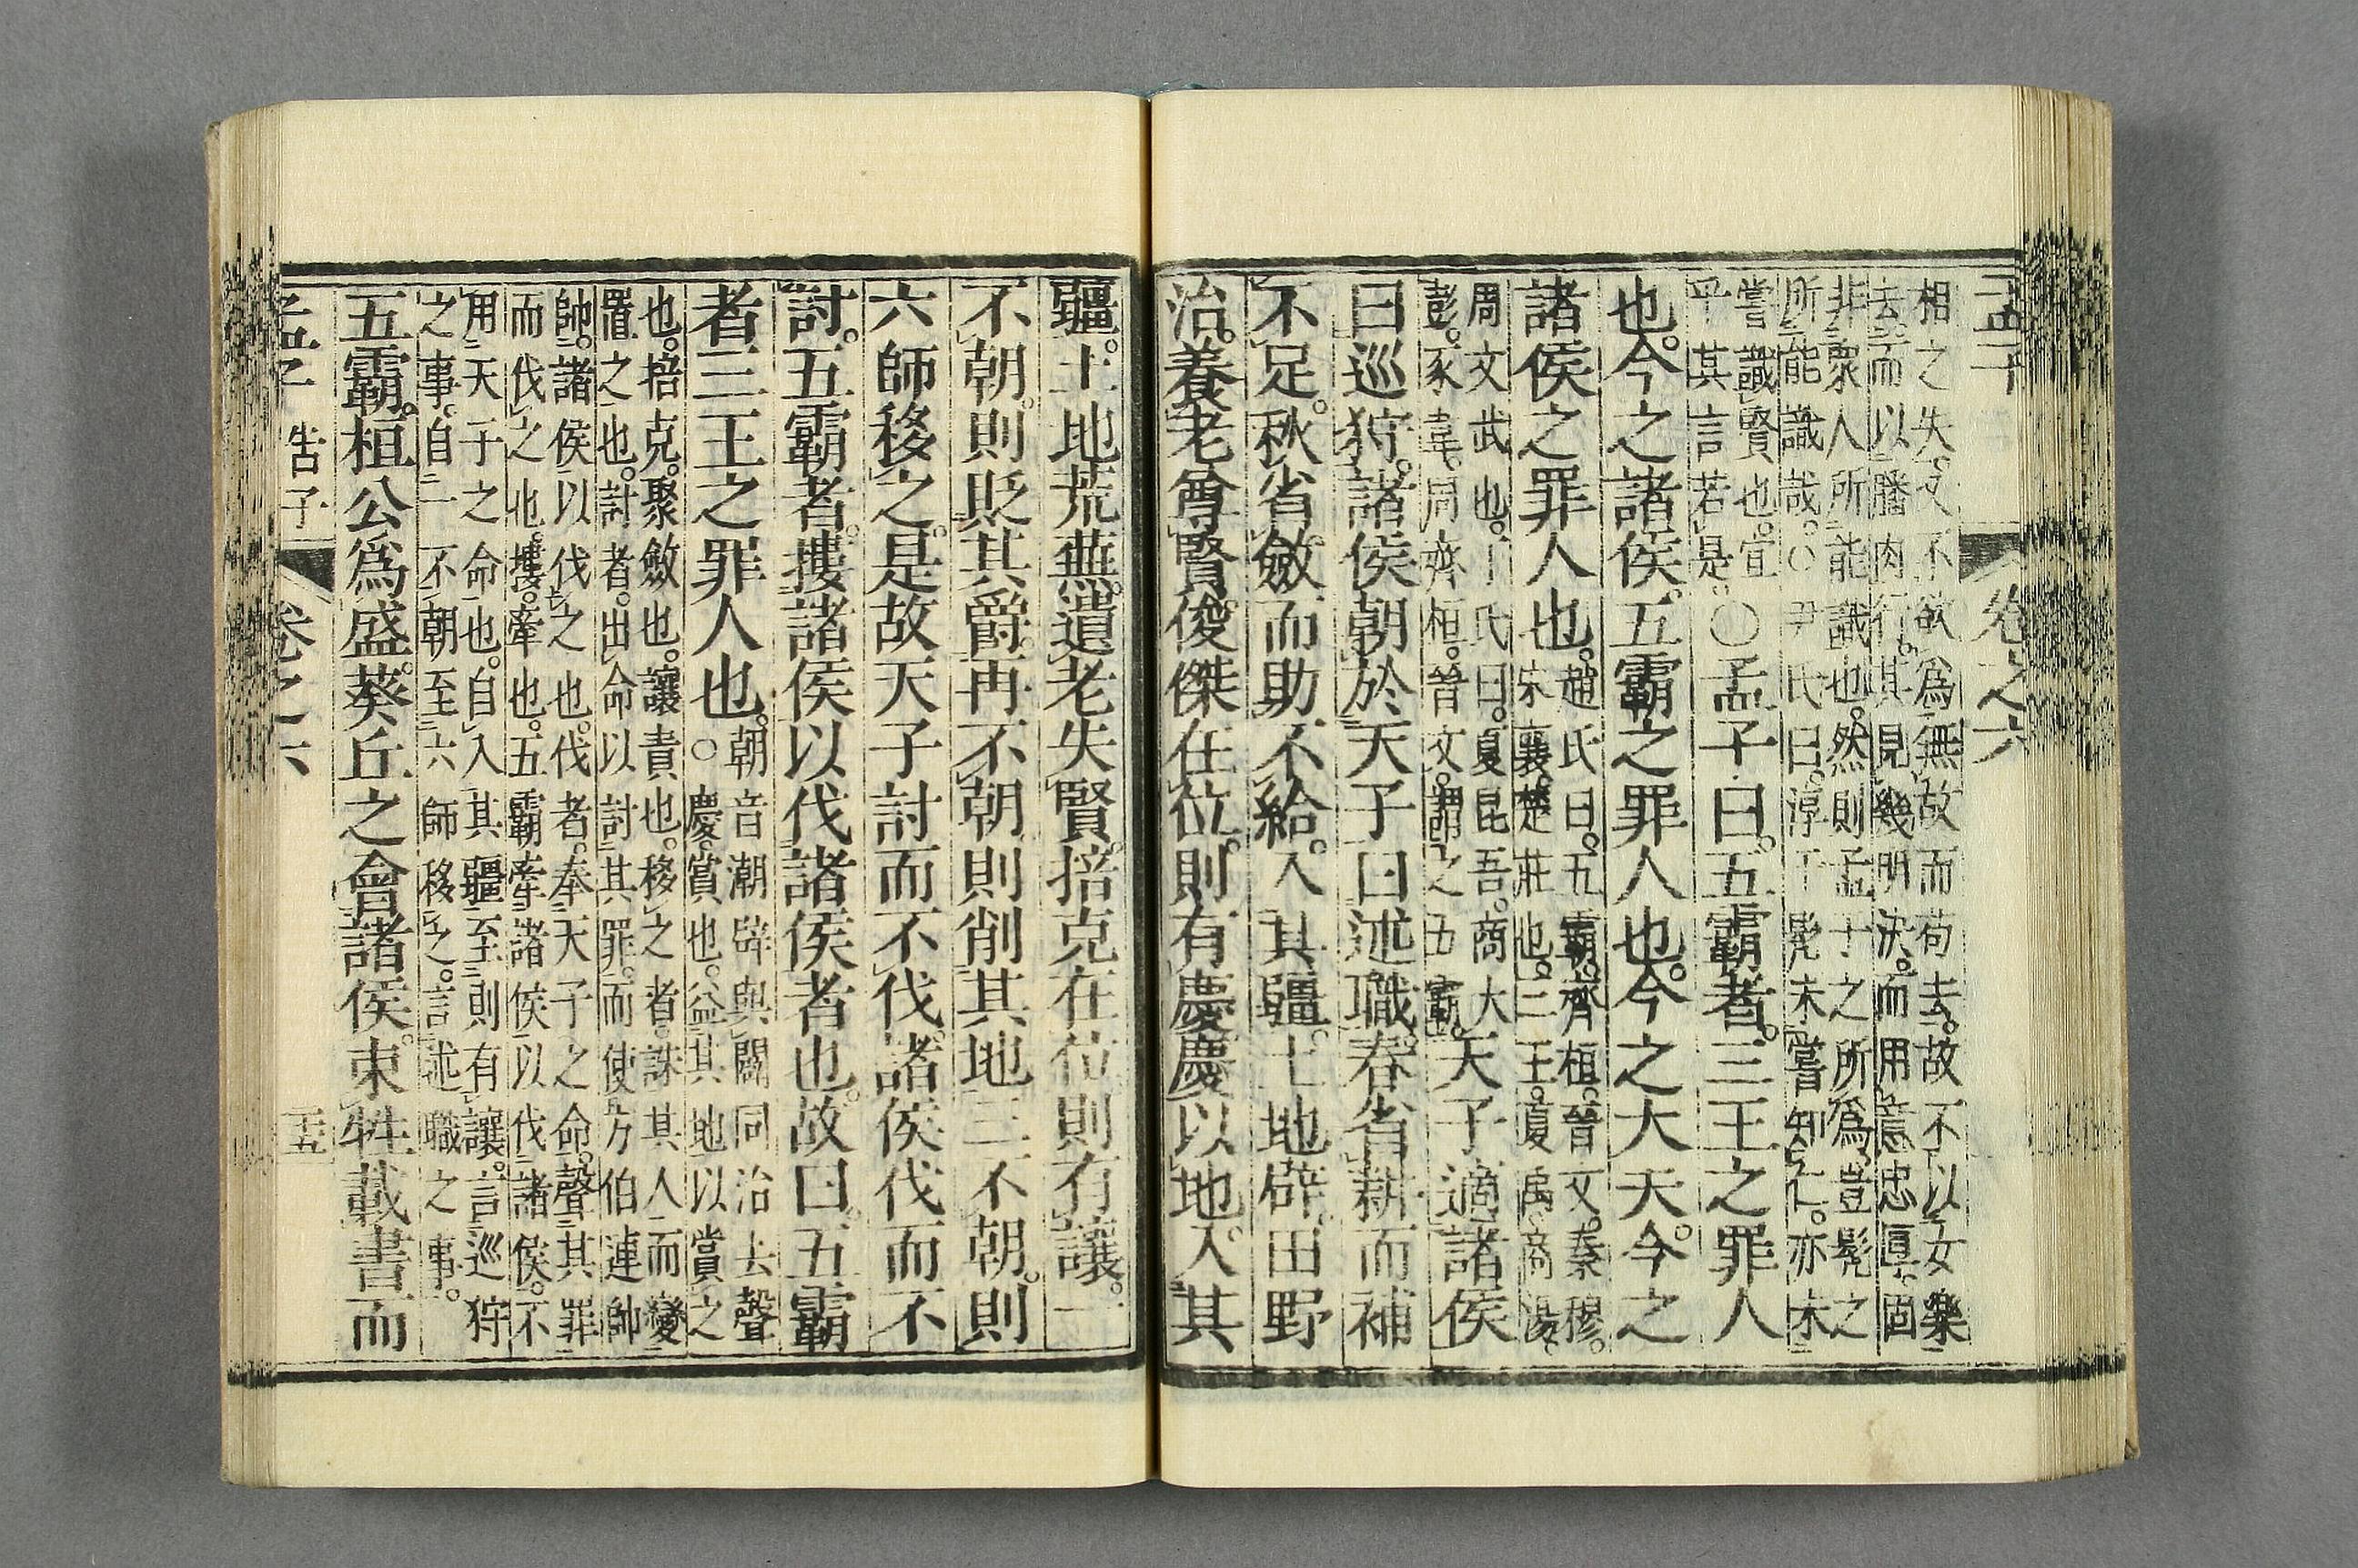 孟子 卷之六
相之失。又不欲爲無故而苟去。故不以女樂
去。而以膰肉行。其見幾明決。而用意忠厚。固
非衆人所能識也。然則孟子之所爲。豈髡之
所能識哉。○尹氏曰。淳于髡未嘗知仁。亦未
嘗識賢也。宜
乎其言若是。
○孟子曰。五霸者。三王之罪人
也。今之諸侯。五霸之罪人也。今之大夫。今之
諸侯之罪人也。
趙氏曰。五霸。齊桓。晉文。秦穆。
宋襄。楚莊也。三王。夏禹。商湯。
周文武也。丁氏曰。夏昆吾。商大
彭。豕韋。周齊桓。晉文。謂之五霸。
天子適諸侯
曰巡狩。諸侯朝於天子曰述職。春省耕而補
不足。秋省斂而助不給。入其疆。土地辟。田野
治。養老尊賢。俊傑在位。則有慶。慶以地。入其
疆。土地荒蕪。遺老失賢。掊克在位。則有讓。一
不朝。則貶其爵。再不朝。則削其地。三不朝。則
六師移之。是故天子討而不伐。諸侯伐而不
討。五霸者。摟諸侯以伐諸侯者也。故曰。五霸
者三王之罪人也。
朝音潮辟與闢同治去聲
○慶。賞也。益其地以賞之
也。掊克。聚斂也。讓責也。移之者。誅其人而變
置之也。討者。出命以討其罪。而使方伯連帥
帥。諸侯以伐之也。伐者。奉天子之命。聲其罪
而伐之也。摟。牽也。五霸牽諸侯以伐諸侯。不
用天子之命也。自入其疆至則有讓。言巡狩
之事。自一不朝至六師移之。言述職之事。
五霸。桓公爲盛。葵丘之會諸侯。束牲載書而
孟子 告子 卷之六 十五